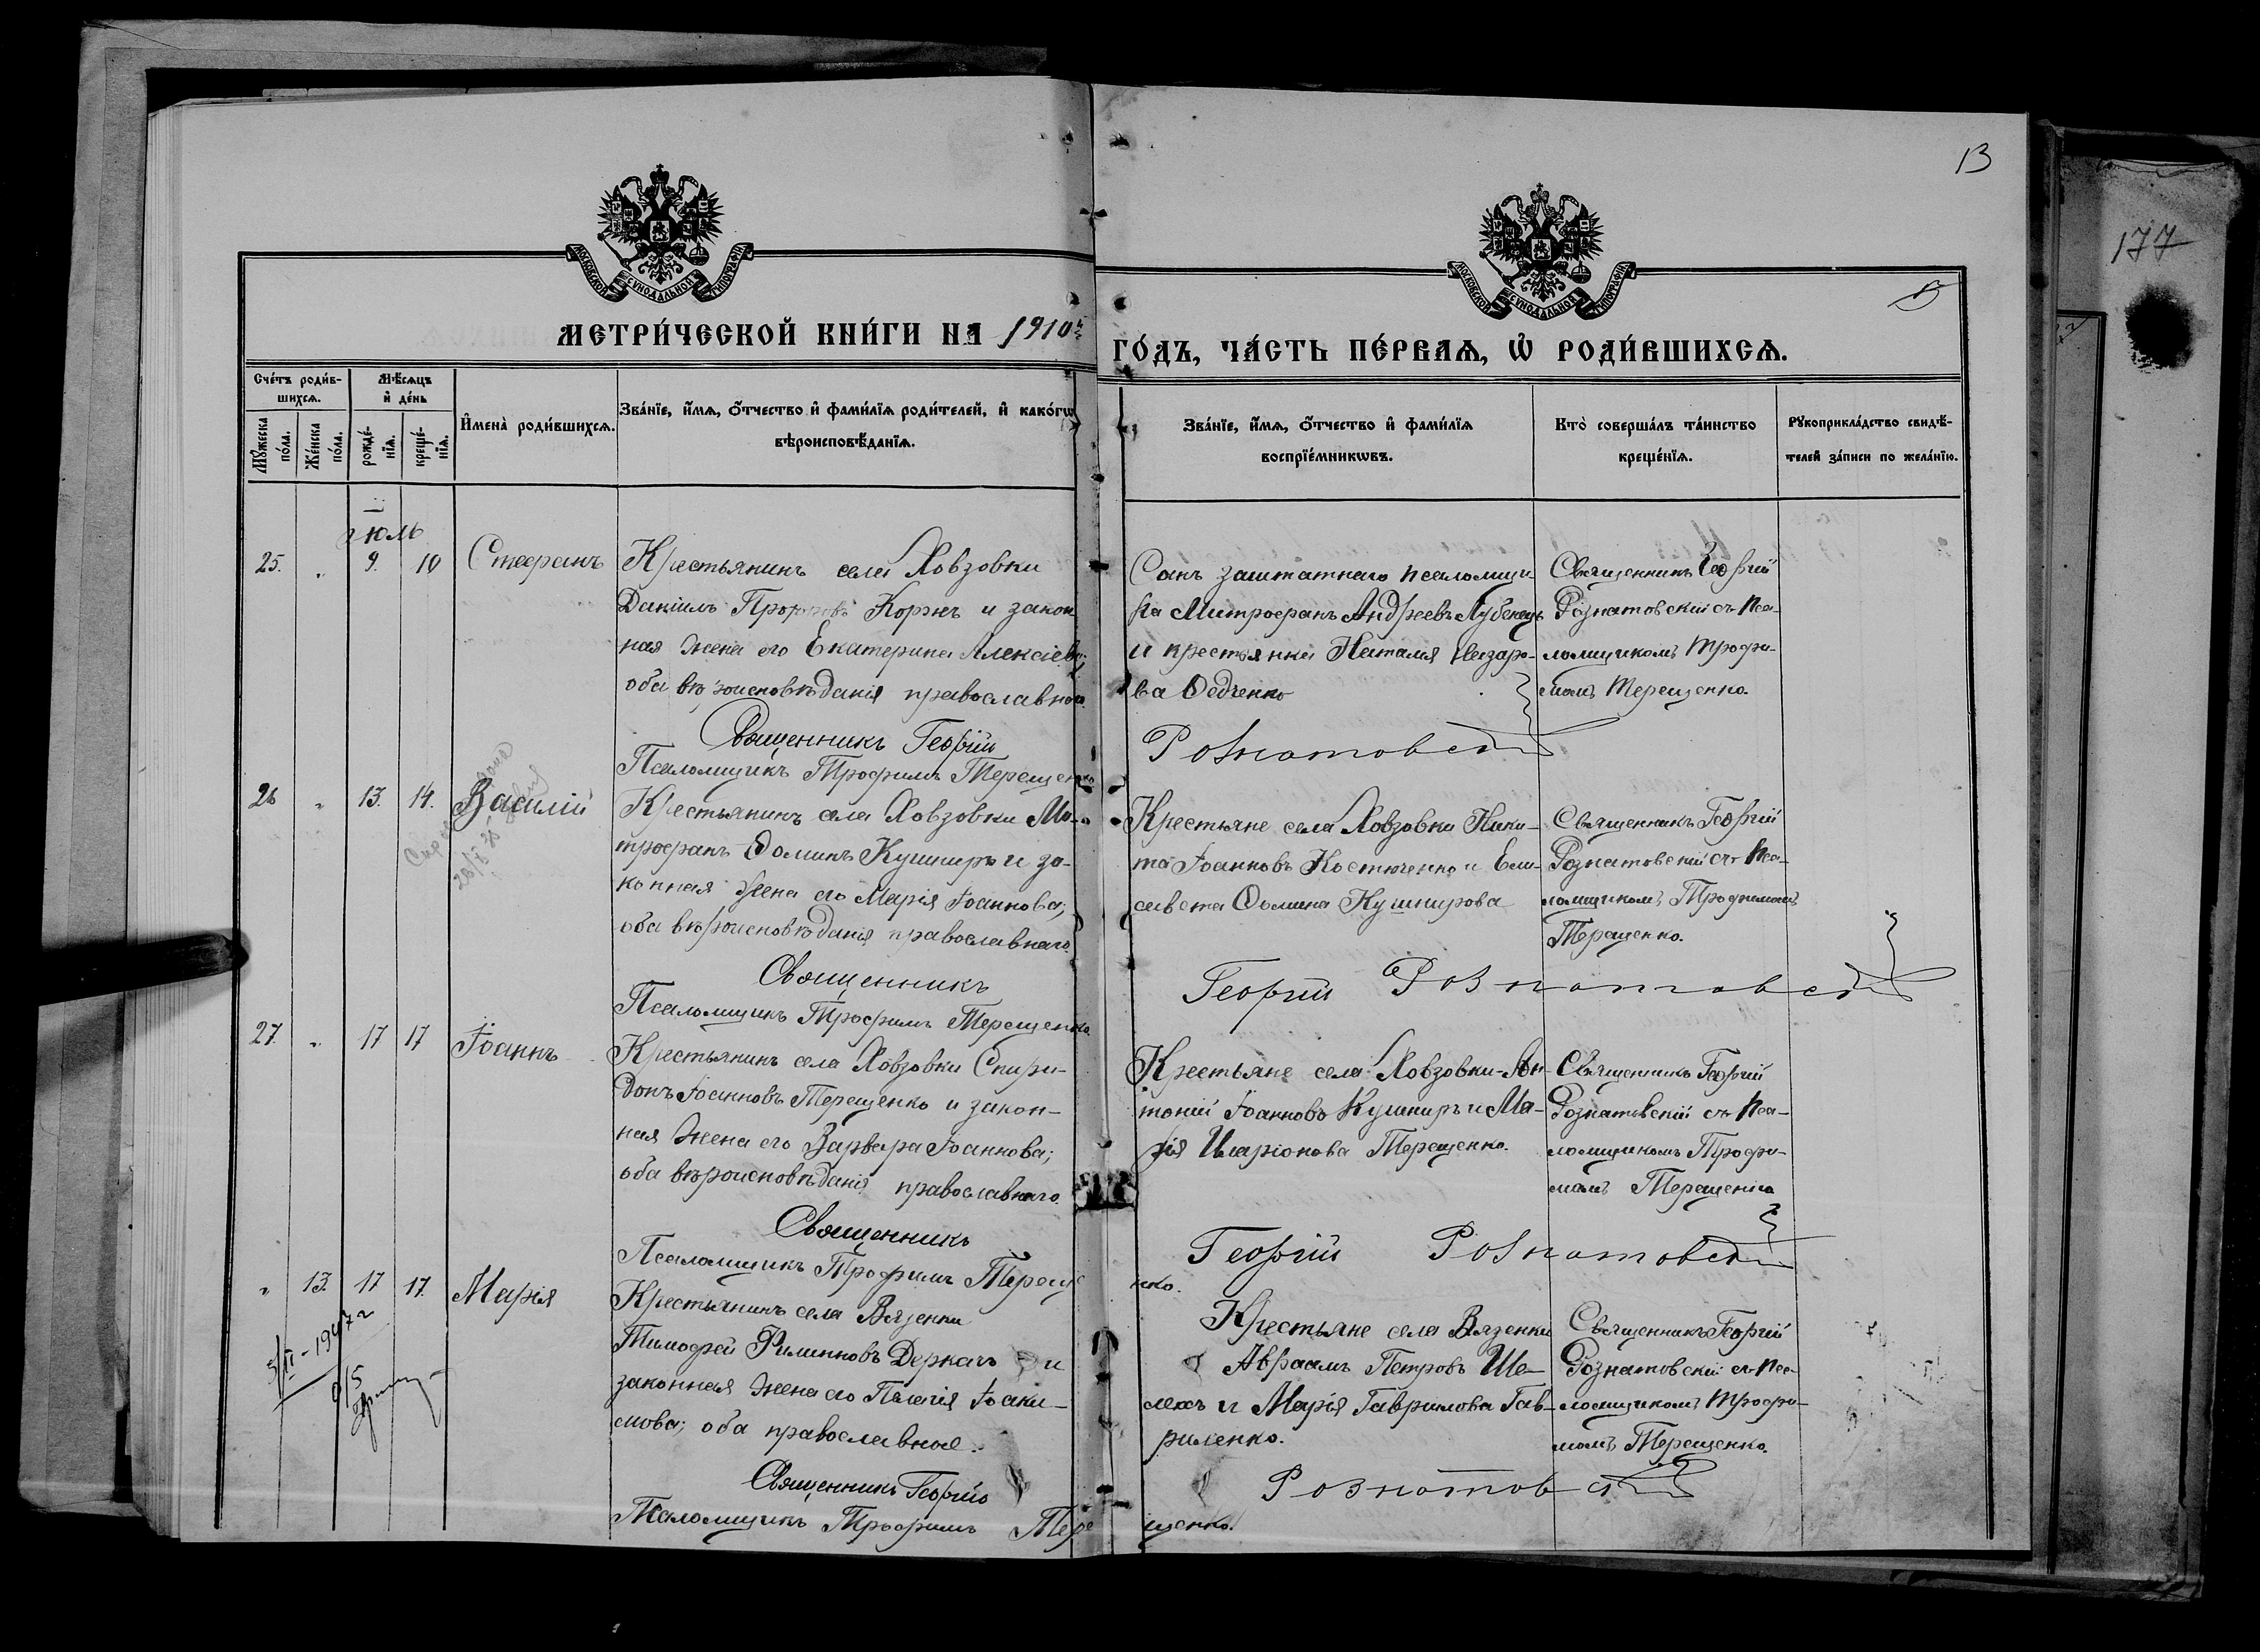 13
177
МОСКОВСКОЙ СѴНОДАЛЬНОЙ ТИПОГРАФІИ
МОСКОВСКОЙ СѴНОДАЛЬНОЙ ТИПОГРАФІИ
МЕТРИ́ЧЕСКОЙ КНИ́ГИ НА 1910й
ГО́ДЪ, ЧА́СТЬ ПЕ́РВАѦ, Ѡ҆ РОДИ́ВШИХСѦ.
Сче́тъ роди́в-
шихсѧ.
Мꙋ́жеска
по́ла.
Же́нска
по́ла.
Мѣ́сѧцъ
и҆ де́нь
рожде́-
нїѧ.
креще́-
нїѧ.
И҆мена̀ роди́вшихсѧ.
Зва́нїе, и҆́мѧ, ѻ҆́тчество и҆ фами́лїѧ роди́телей, и҆ како́гѡ
вѣроисповѣ́данїѧ.
Зва́нїе, и҆́мѧ, ѻ҆́тчество и҆ фами́лїѧ
воспрїе́мникѡвъ.
Кто̀ соверша́лъ та́инство
креще́нїѧ.
Рꙋкоприкла́дство свидѣ́-
телей за́писи по жела́нїю.
Іюль
25. „ 9. 10 Стефанъ
Крестьянинъ села Ховзовки
Даніилъ Коржъ и закон
ная жена его Екатерина Алексіева;
оба вѣроисповѣданія православнаго.
Священникъ Георгій
Псаломщикъ Трофимъ Терещенко
Сынъ заштатнаго псаломщи-
ка Митрофанъ Андреевъ Лубенецъ
и крестьянка Наталія Назаро-
ва Федченко
Рознатовскій
Священникъ Георгій
Рознатовскій съ пса-
ломщикомъ Трофи-
момъ Терещенко.
26 „ 13. 14. Василій
Крестьянинъ села Ховзовки Ми-
трофанъ Ѳоминъ Кушниръ и за-
конная жена его Марія Іоаннова;
оба вѣроисповѣданія православнаго.
Священникъ
Псаломщикъ Трофимъ Терещенко
Крестьяне села Ховзовки Ники-
та Іоанновъ Костюченко и Ели-
савета Ѳомина Кушнирова
Георгій Рознатовскій
Священникъ Георгій
Рознатовскій съ пса-
ломщикомъ Трофимомъ
Терещенко.
27. „ 17 17 Іоаннъ
Крестьянинъ села Ховзовки Спири-
донъ Іоанновъ Терещенко и закон-
ная жена его Варвара Іоаннова;
оба вѣроисповѣданія православнаго.
Священникъ
Псаломщикъ Трофимъ Тереще
нко.
Крестьяне села Ховзовки-Ан-
тоній Іоанновъ Кушниръ и Ма-
рія Иларіонова Терещенко.
Георгій Рознатовскій
Священникъ Георгій
Рознатовскій съ пса-
ломщикомъ Трофи-
момъ Терещенко
„ 13. 17 17. Марія
Крестьянинъ села Вязенки
Тимофей Филипповъ Деркачъ и
законная жена его Пелагія Іоаки-
мова; оба православные.
Священникъ Георгій
Псаломщикъ Трофимъ Тере
щенко.
Крестьяне села Вязенки
Авраамъ Петровъ Ше-
лехъ и Марія Гаврилова Гав-
риленко.
Рознатовскій
Священникъ Георгій
Рознатовскій съ пса-
ломщикомъ Трофи-
момъ Терещенко.